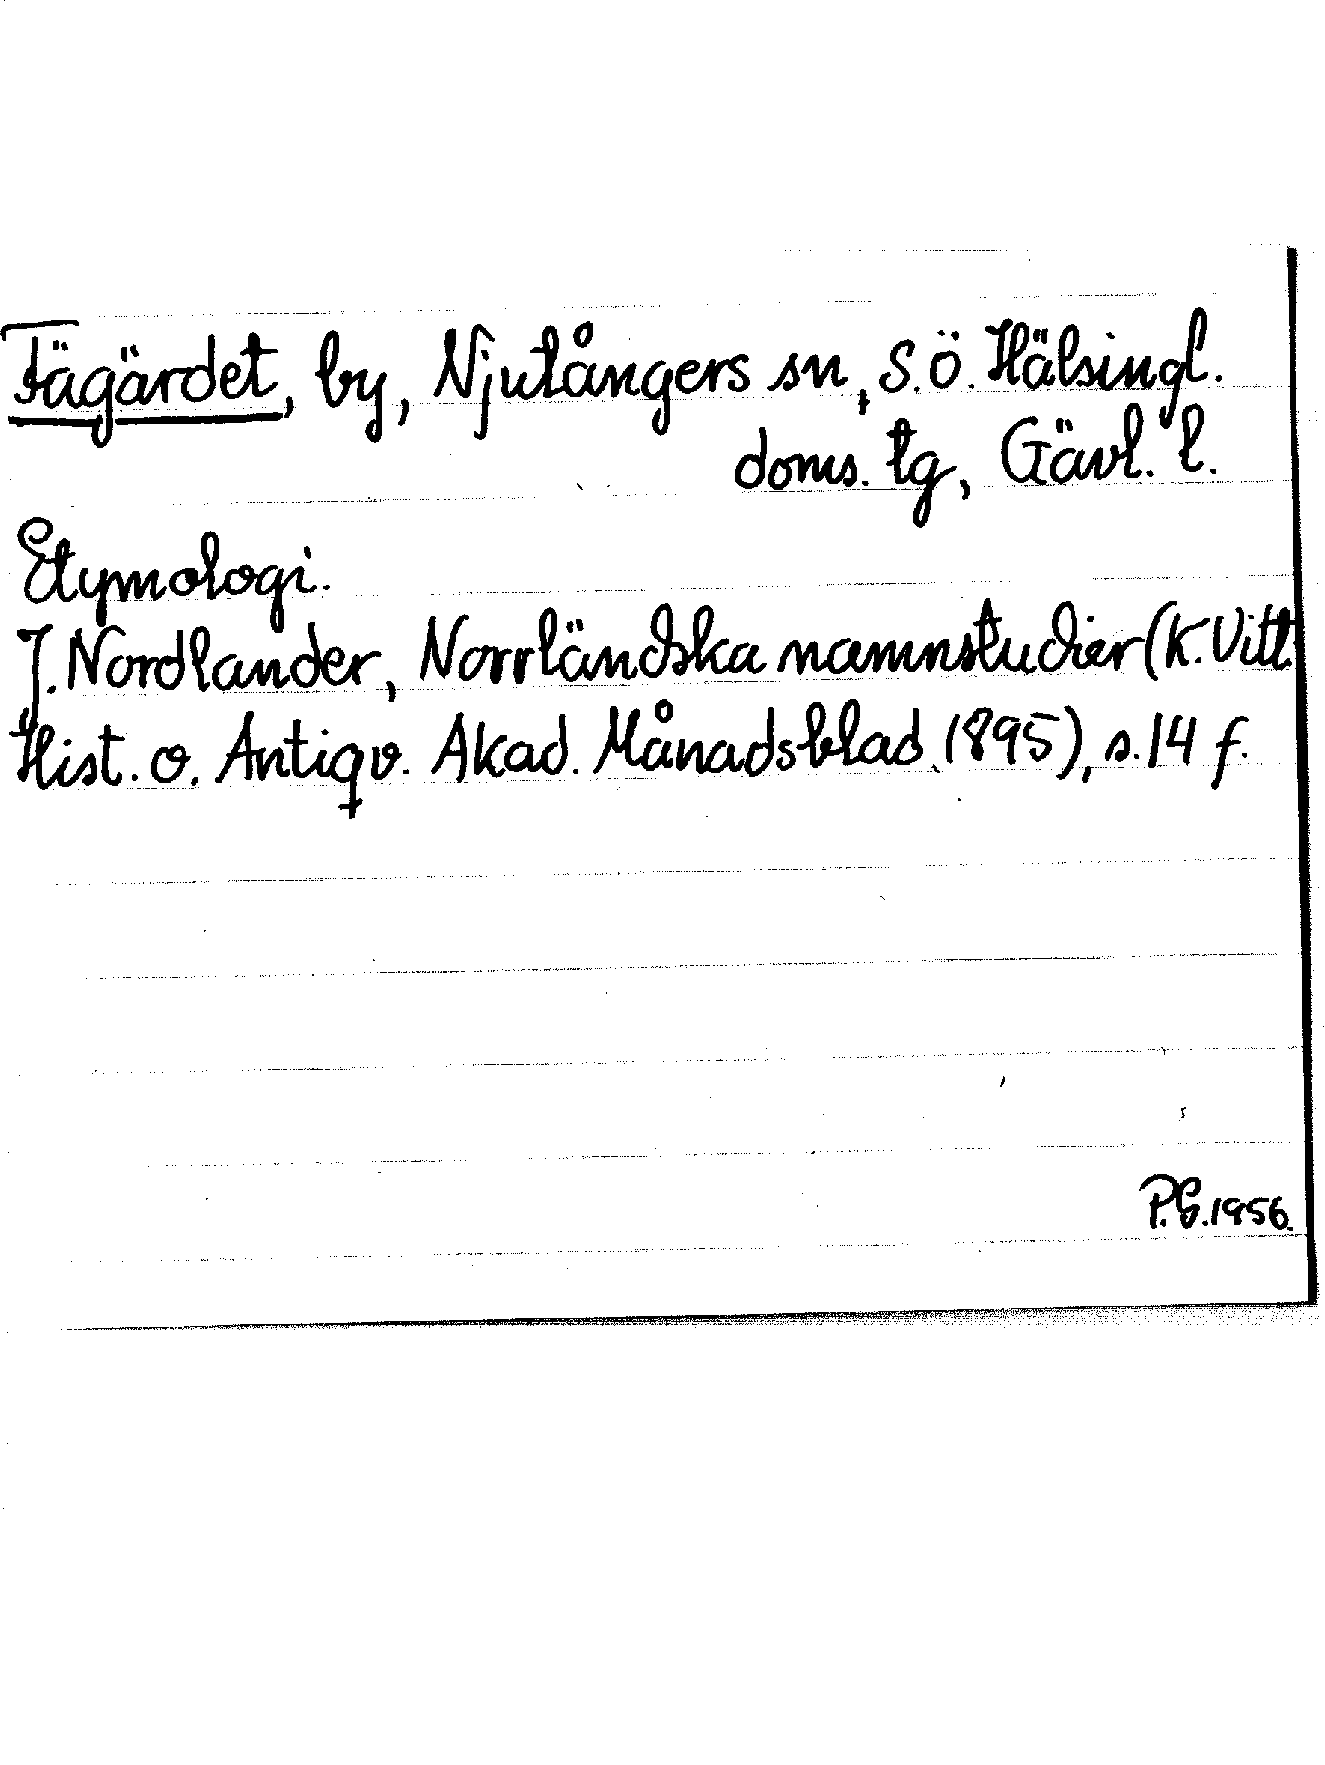 Fägärdet, by, Njutångers sn, S.Ö. Hälsingl.
doms. tg, Gävl. l.
Etymologi.
J. Nordlander, Norrländska namnstudier (K. Vitt.
Hist. o. Antiqv. Akad. Månadsblad 1895), s. 14 f.
P.G. 1956.